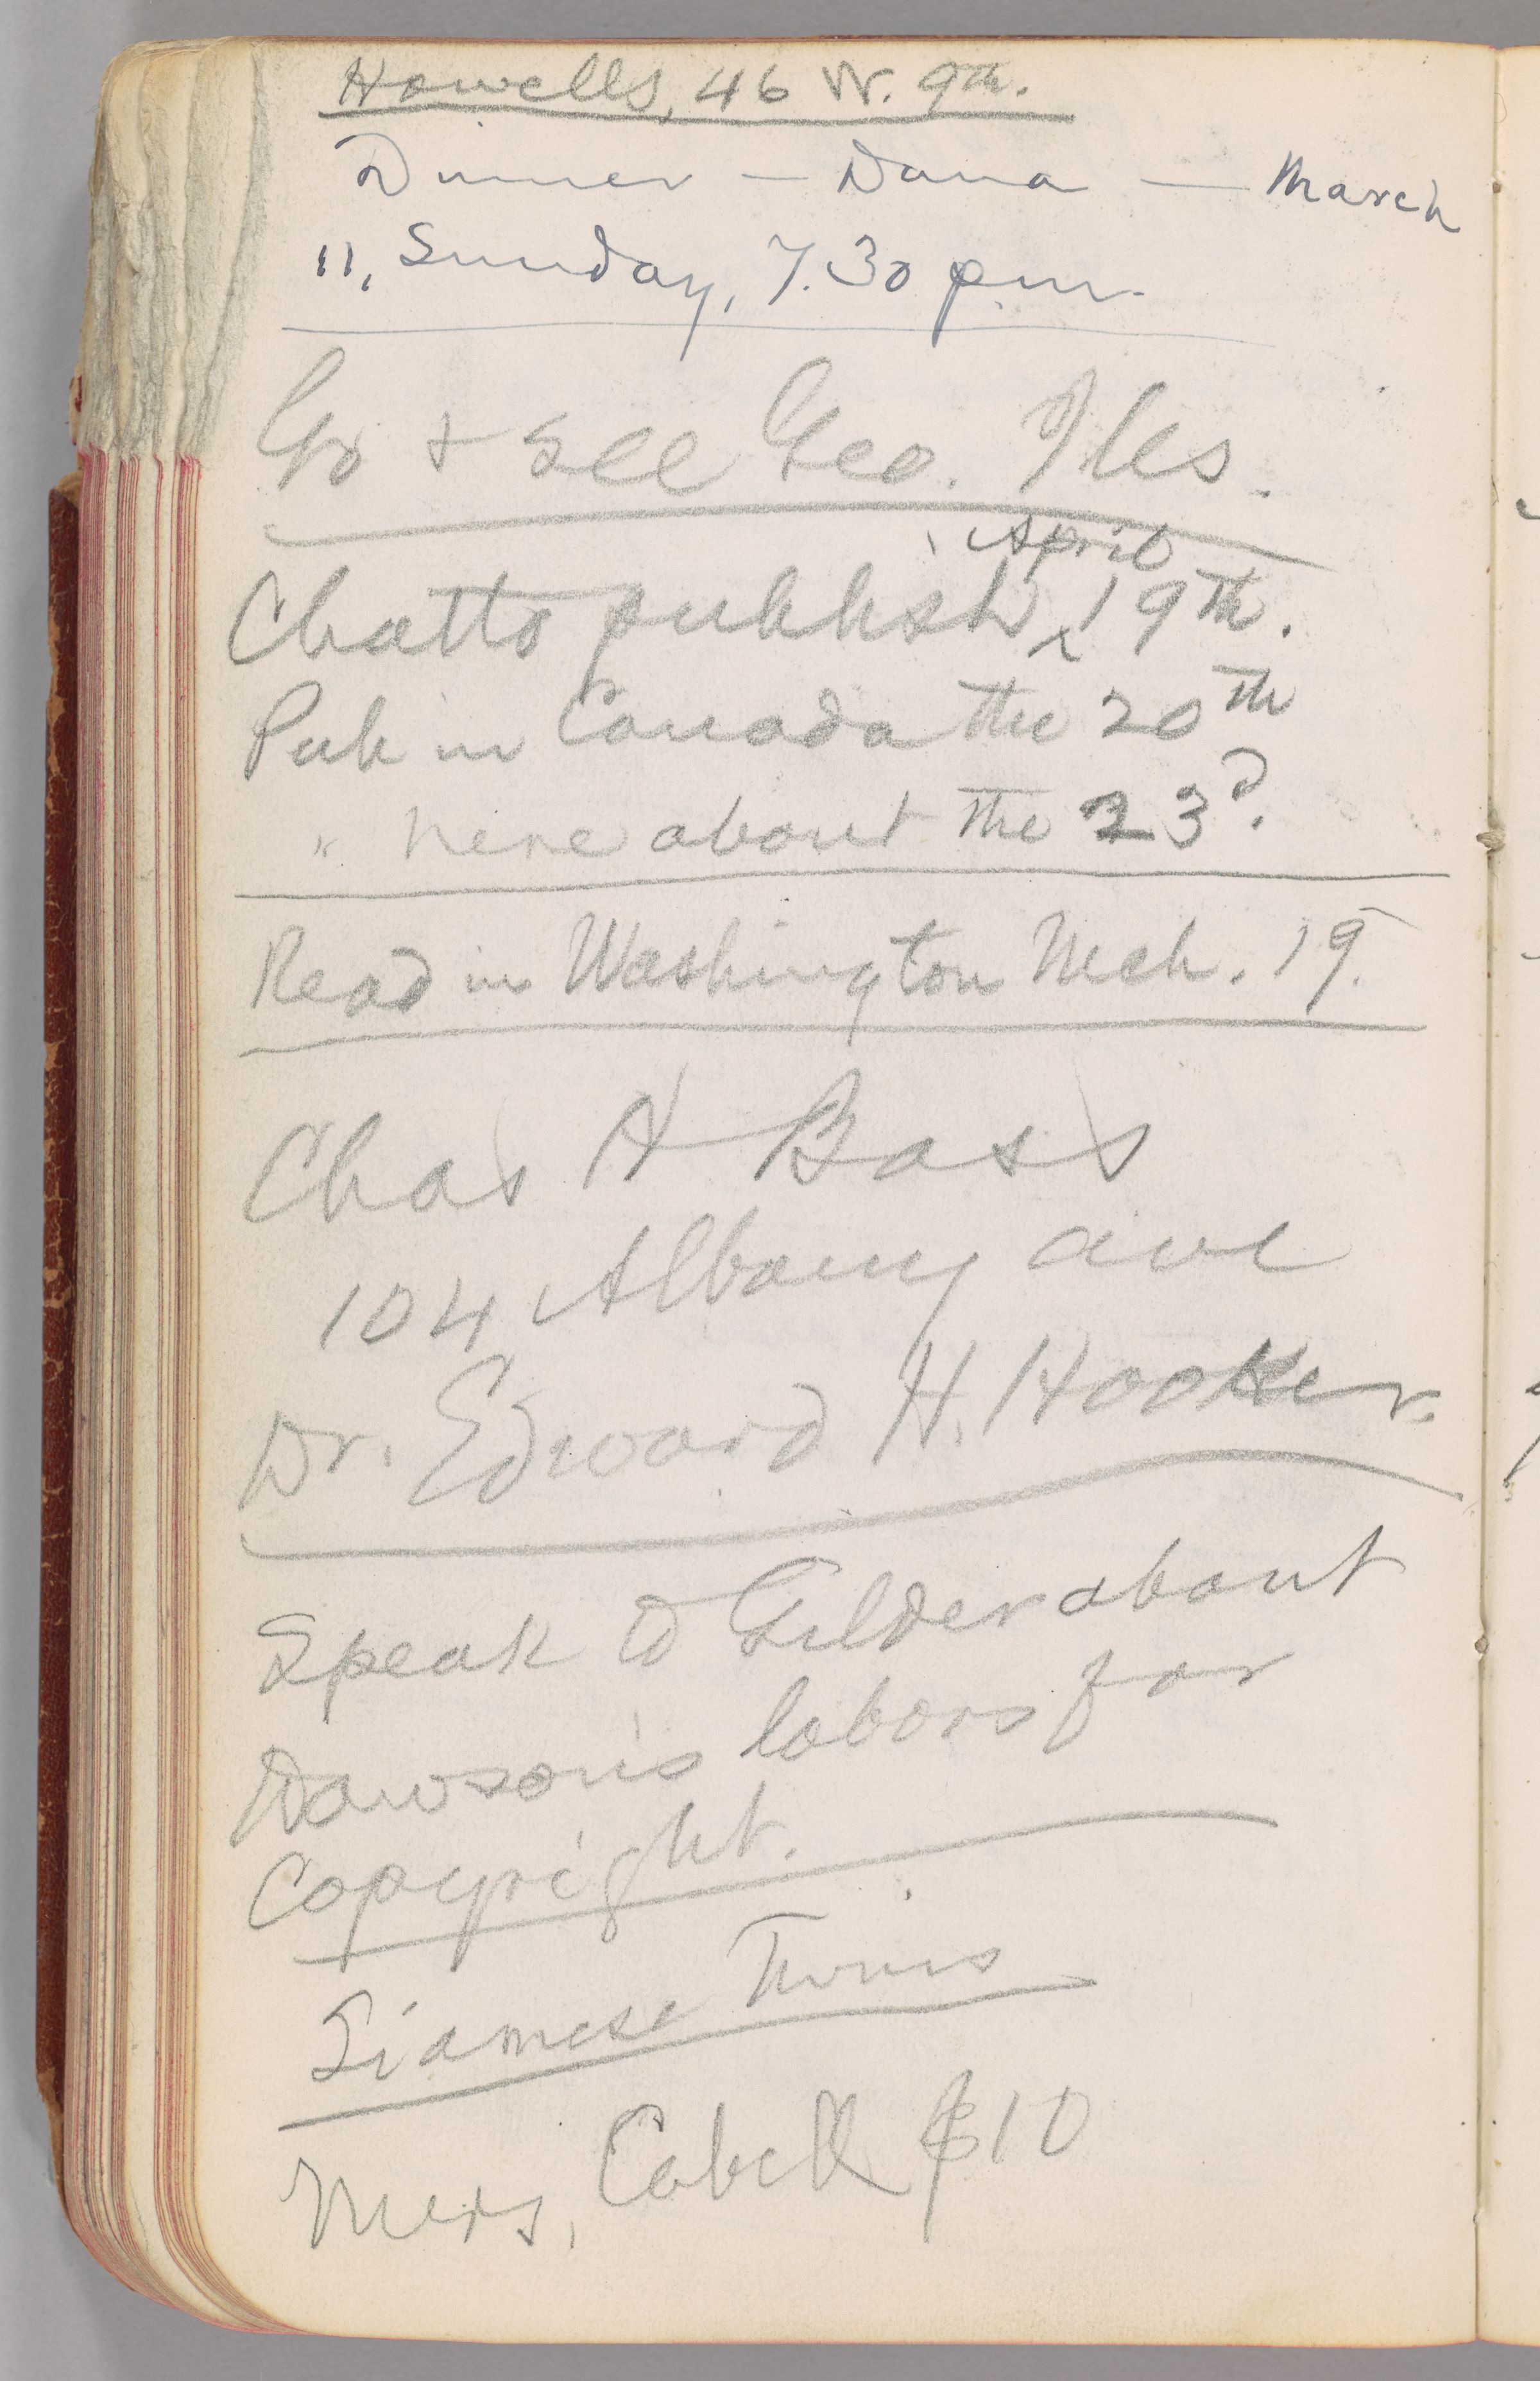 Howells, 46 W. 9th.
Dinner — Dana — March
11, Sunday, 7.30 pm.
Go & see Geo. Iles.
April
Chatto publish ‸ 19th.
Pub in Canada the 20th
" here about the 23d.
Read in Washington Mch. 19.
Chas H Bass
104 Albany ave
Dr. Edward H. Hooker.
Speak to Gilder about
Dawson's labors for
Copyright.
Siamese Twins
Mrs, Cabell $10